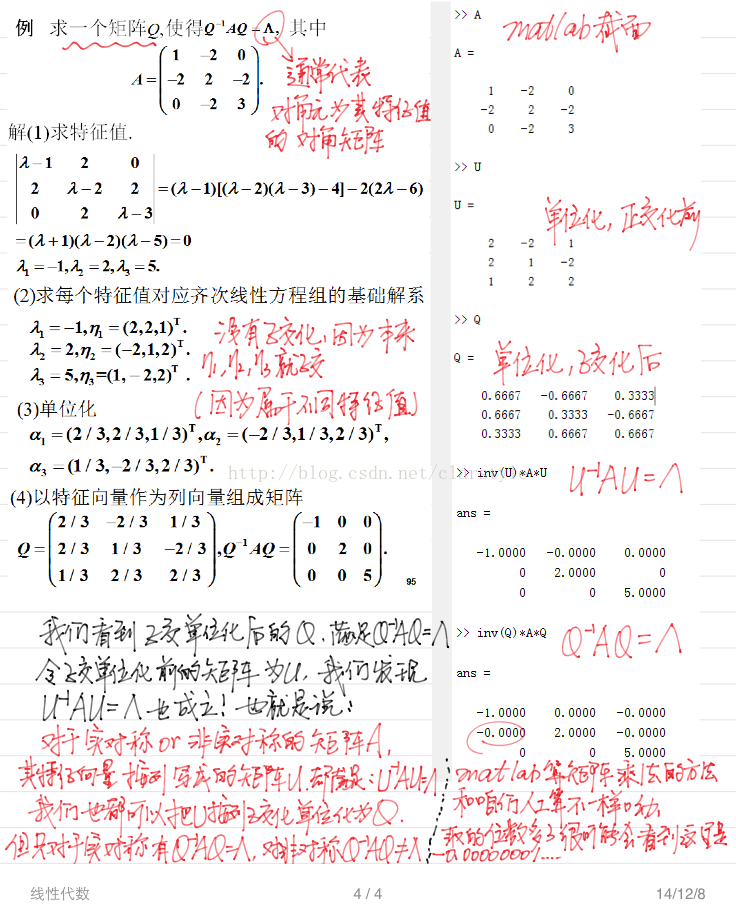 例 求一个矩阵Q,使得Q⁻¹AQ = Λ, 其中
A = ( 1 −2 0
−2 2 −2
0 −2 3 ).
通常代表
对角元为其特征值
的 对角矩阵
解(1)求特征值.
|λ−1 2 0|
|2 λ−2 2| = (λ−1)[(λ−2)(λ−3)−4]−2(2λ−6)
|0 2 λ−3|
= (λ+1)(λ−2)(λ−5) = 0
λ₁ = −1, λ₂ = 2, λ₃ = 5.
(2)求每个特征值对应齐次线性方程组的基础解系
λ₁ = −1, η₁ = (2,2,1)ᵀ.
λ₂ = 2, η₂ = (−2,1,2)ᵀ.
λ₃ = 5, η₃=(1, −2,2)ᵀ .
没有正交化,因为本来
η₁,η₂,η₃就正交
(因为属于不同特征值)
(3)单位化
α₁ = (2/3,2/3,1/3)ᵀ, α₂ = (−2/3,1/3,2/3)ᵀ,
α₃ = (1/3,−2/3,2/3)ᵀ.
(4)以特征向量作为列向量组成矩阵
Q = ( 2/3 −2/3 1/3
2/3 1/3 −2/3
1/3 2/3 2/3 ), Q⁻¹AQ = ( −1 0 0
0 2 0
0 0 5 ).
95
我们看到正交单位化后的Q.满足Q⁻¹AQ=Λ
令正交单位化前的矩阵为U,我们发现
U⁻¹AU=Λ也成立!也就是说:
对于实对称 or 非实对称的矩阵A,
其特征向量按列写成的矩阵U.都满足:U⁻¹AU=Λ
我们也都可以把U按列正交化单位化为Q.
但只对于实对称有Q⁻¹AQ=Λ,对非对称Q⁻¹AQ≠Λ
>> A
matlab截面
A =
1 -2 0
-2 2 -2
0 -2 3
>> U
U =
单位化,正交化前
2 -2 1
2 1 -2
1 2 2
>> Q
Q =
单位化,正交化后
0.6667 -0.6667 0.3333
0.6667 0.3333 -0.6667
0.3333 0.6667 0.6667
>> inv(U)*A*U
U⁻¹AU=Λ
ans =
-1.0000 -0.0000 0.0000
0 2.0000 0
0 0 5.0000
>> inv(Q)*A*Q
Q⁻¹AQ=Λ
ans =
-1.0000 0.0000 -0.0000
-0.0000 2.0000 -0.0000
0 0 5.0000
matlab算矩阵乘法的方法
和咱们人工算不一样哟
的位数多了很可能会看到这里是
-0.00000001....
线性代数
4 / 4
14/12/8